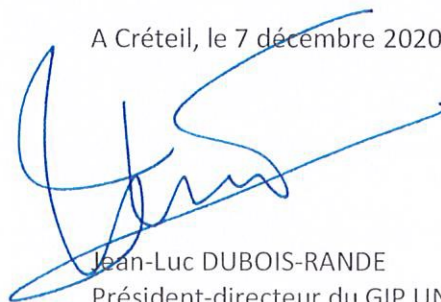 A Créteil, le 7 décembre 2020
Jean-Luc DUBOIS-RANDE
Président-directeur du GIP UN